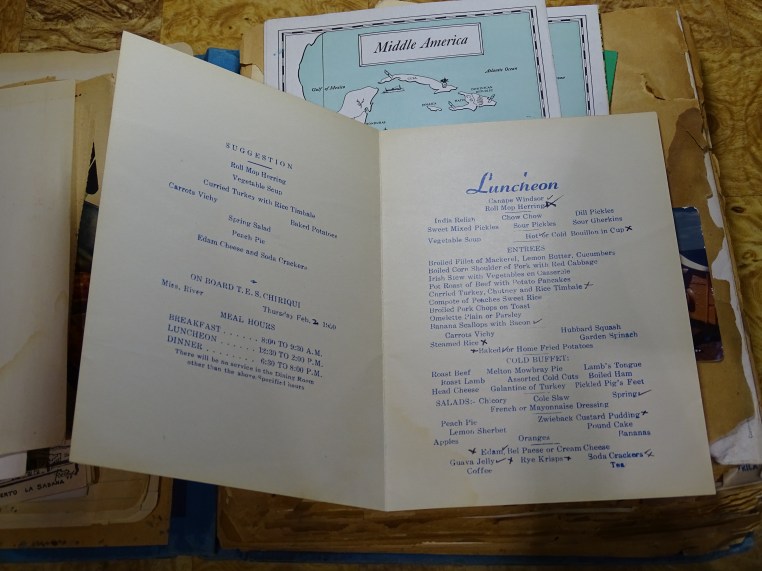 Middle America
Gulf of Mexico
Atlantic Ocean
CUBA
SUGGESTION
Roll Mop Herring
Vegetable Soup
Curried Turkey with Rice Timbale
Carrots Vichy Baked Potatoes
Spring Salad
Peach Pie
Edam Cheese and Soda Crackers
ON BOARD T. E. S. CHIRIQUI
Miss. River Thursday Feb. 2 1960
MEAL HOURS
BREAKFAST . . . . . . 8:00 TO 9:30 A.M.
LUNCHEON . . . . . . 12:30 TO 2:00 P.M.
DINNER . . . . . . . . 6:30 TO 8:00 P.M.
There will be no service in the Dining Room
other than the above specified hours
Luncheon
Canape Windsor
Roll Mop Herring
India Relish Chow Chow Dill Pickles
Sweet Mixed Pickles Sour Pickles Sour Gherkins
Vegetable Soup Hot or Cold Bouillon in Cup
ENTREES
Broiled Fillet of Mackerel, Lemon Butter, Cucumbers
Boiled Corn Shoulder of Pork with Red Cabbage
Irish Stew with Vegetables en Casserole
Pot Roast of Beef with Potato Pancakes
Curried Turkey, Chutney and Rice Timbale
Compote of Peaches Sweet Rice
Broiled Pork Chops on Toast
Omelette Plain or Parsley
Banana Scallops with Bacon
Carrots Vichy Hubbard Squash
Steamed Rice Garden Spinach
Baked or Home Fried Potatoes
COLD BUFFET:
Roast Beef Melton Mowbray Pie Lamb's Tongue
Roast Lamb Assorted Cold Cuts Boiled Ham
Head Cheese Galantine of Turkey Pickled Pig's Feet
SALADS:- Chicory Cole Slaw Spring
French or Mayonnaise Dressing
Peach Pie Zwieback Custard Pudding
Lemon Sherbet Pound Cake
Apples Oranges Bananas
Edam, Bel Paese or Cream Cheese
Guava Jelly Rye Krisps Soda Crackers
Coffee Tea